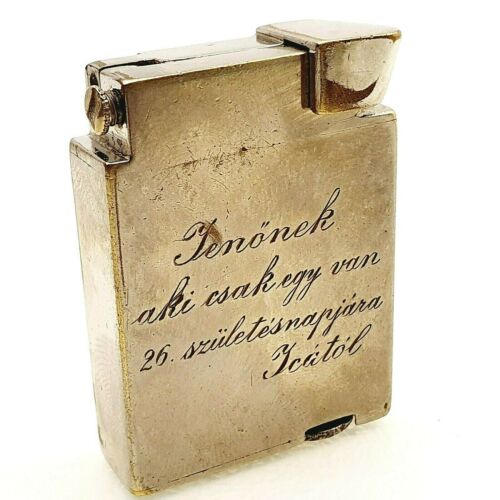 Jenőnek
aki csak egy van
26. születésnapjára
Icától